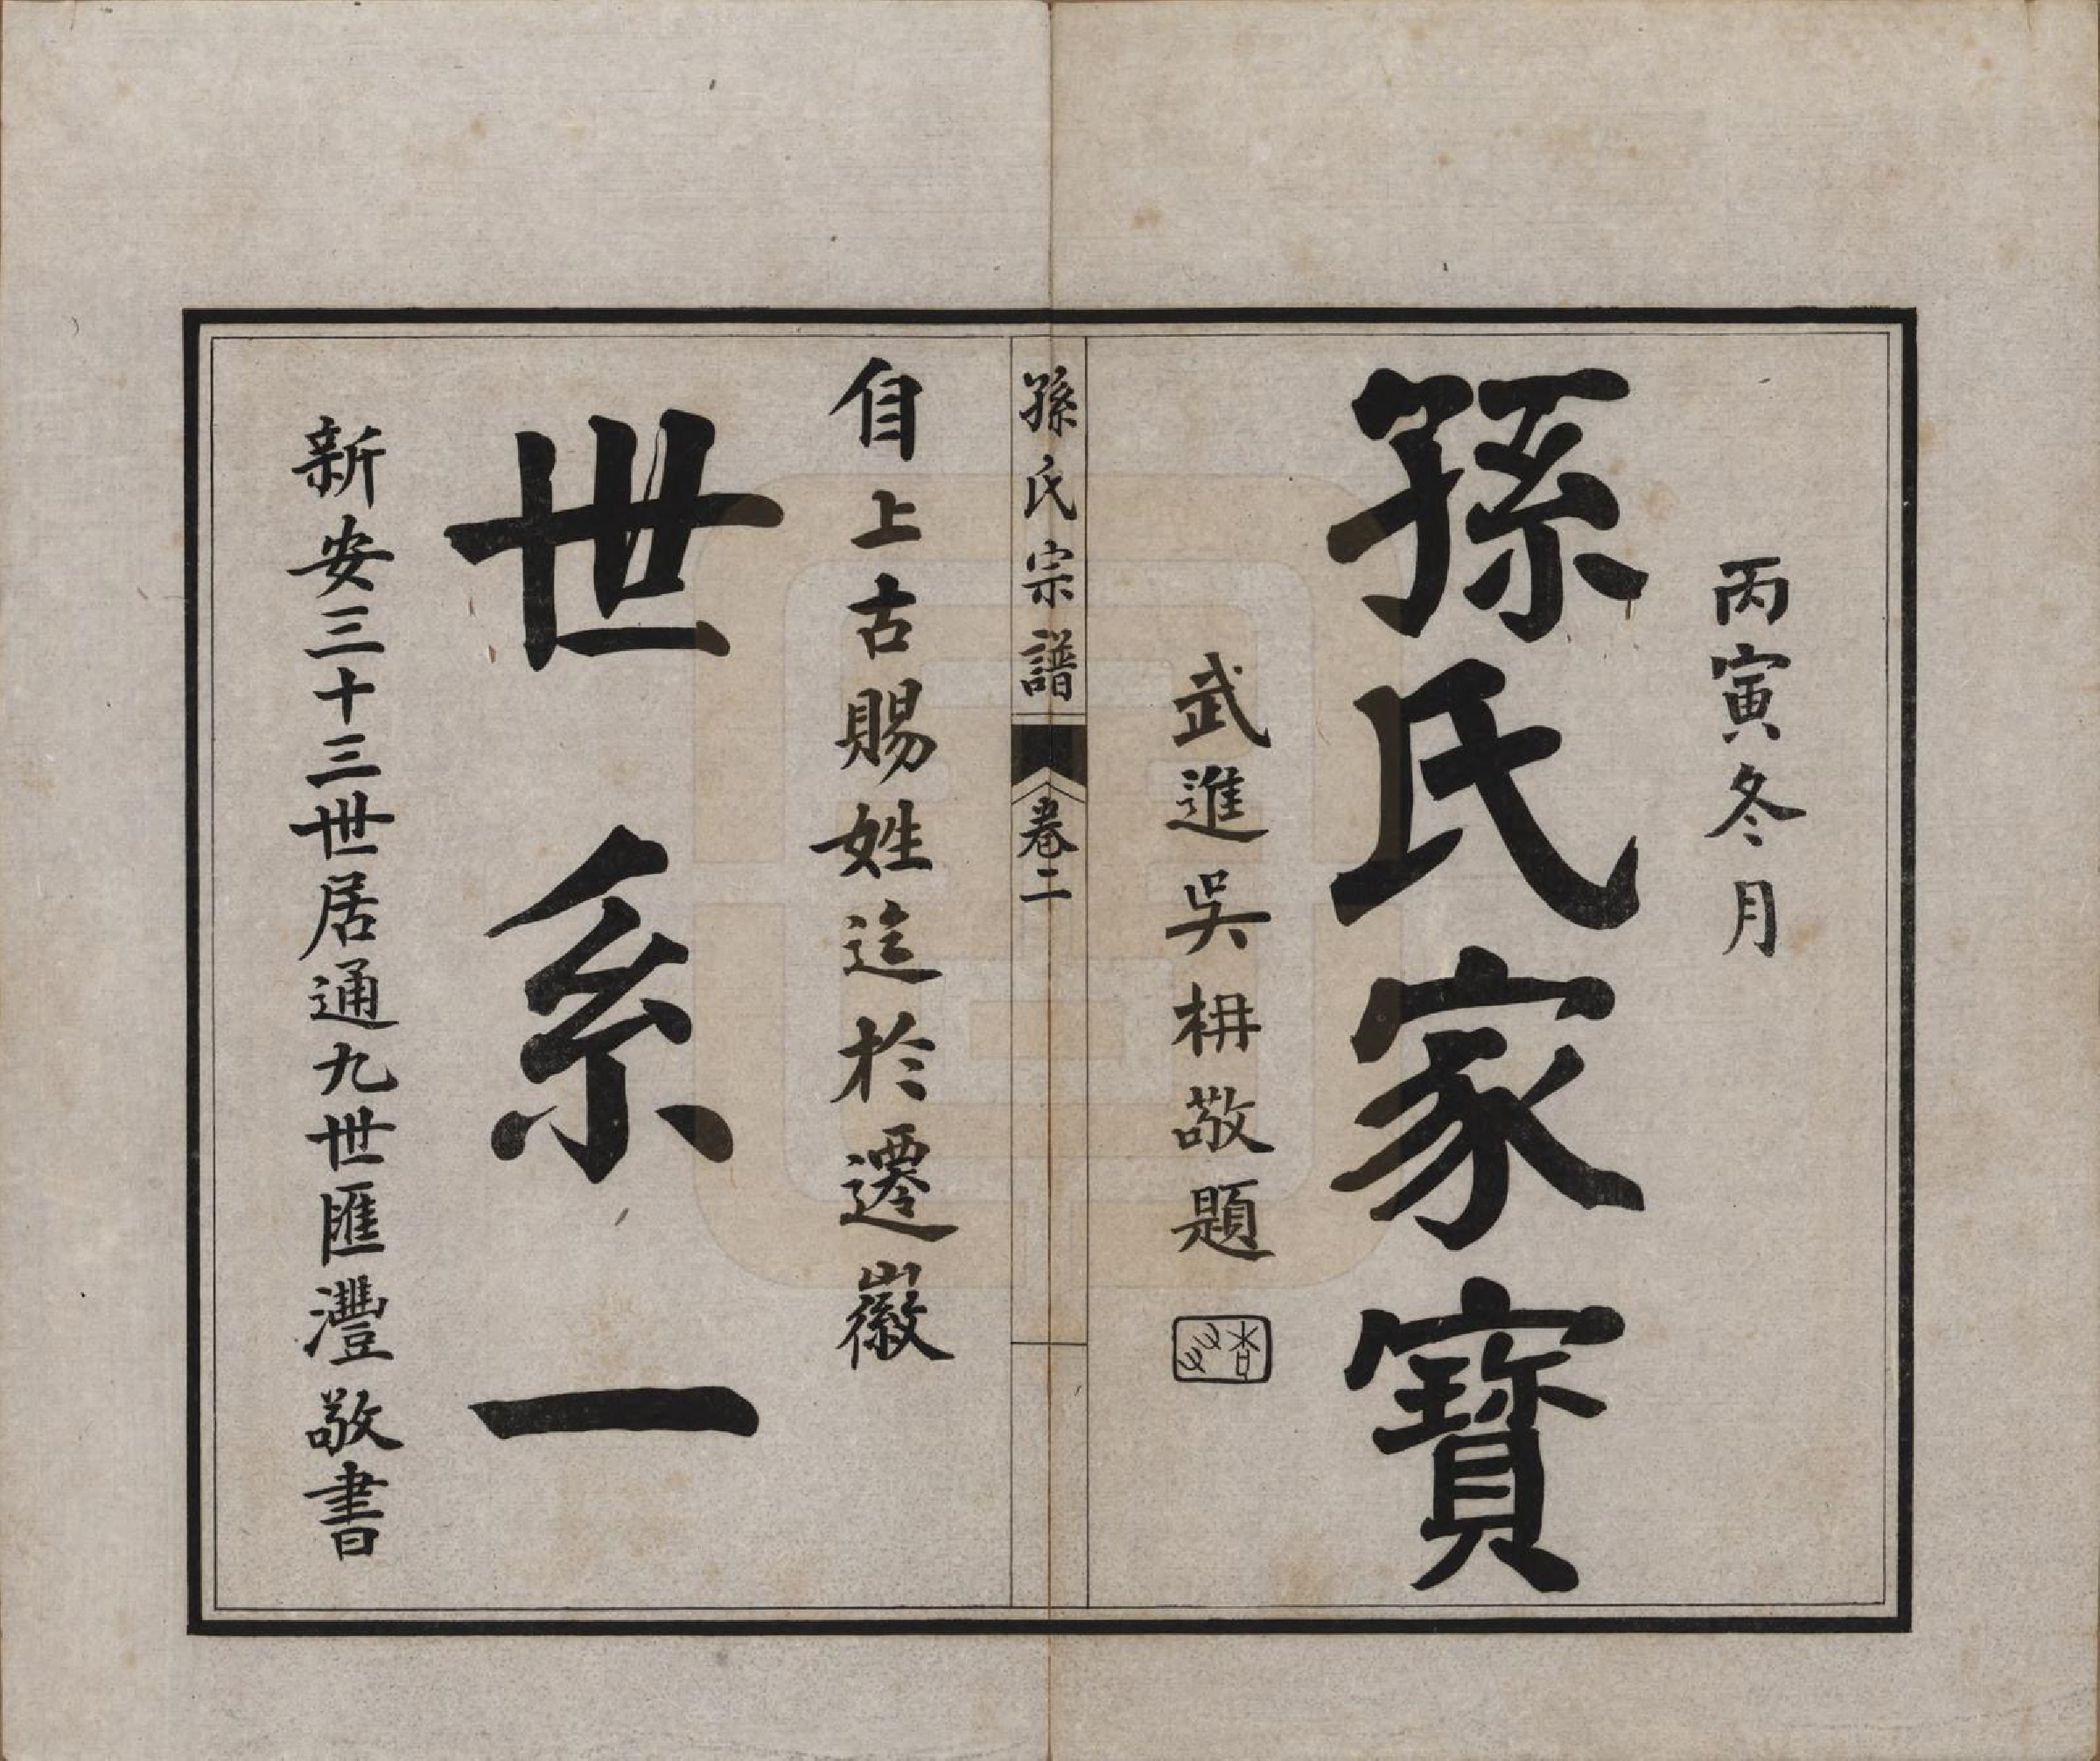 丙寅冬月
孫氏家寶
武進吳枏敬題
孫氏宗譜 卷二
自上古賜姓迄於遷徽
世系一
新安三十三世居通九世匯灃敬書